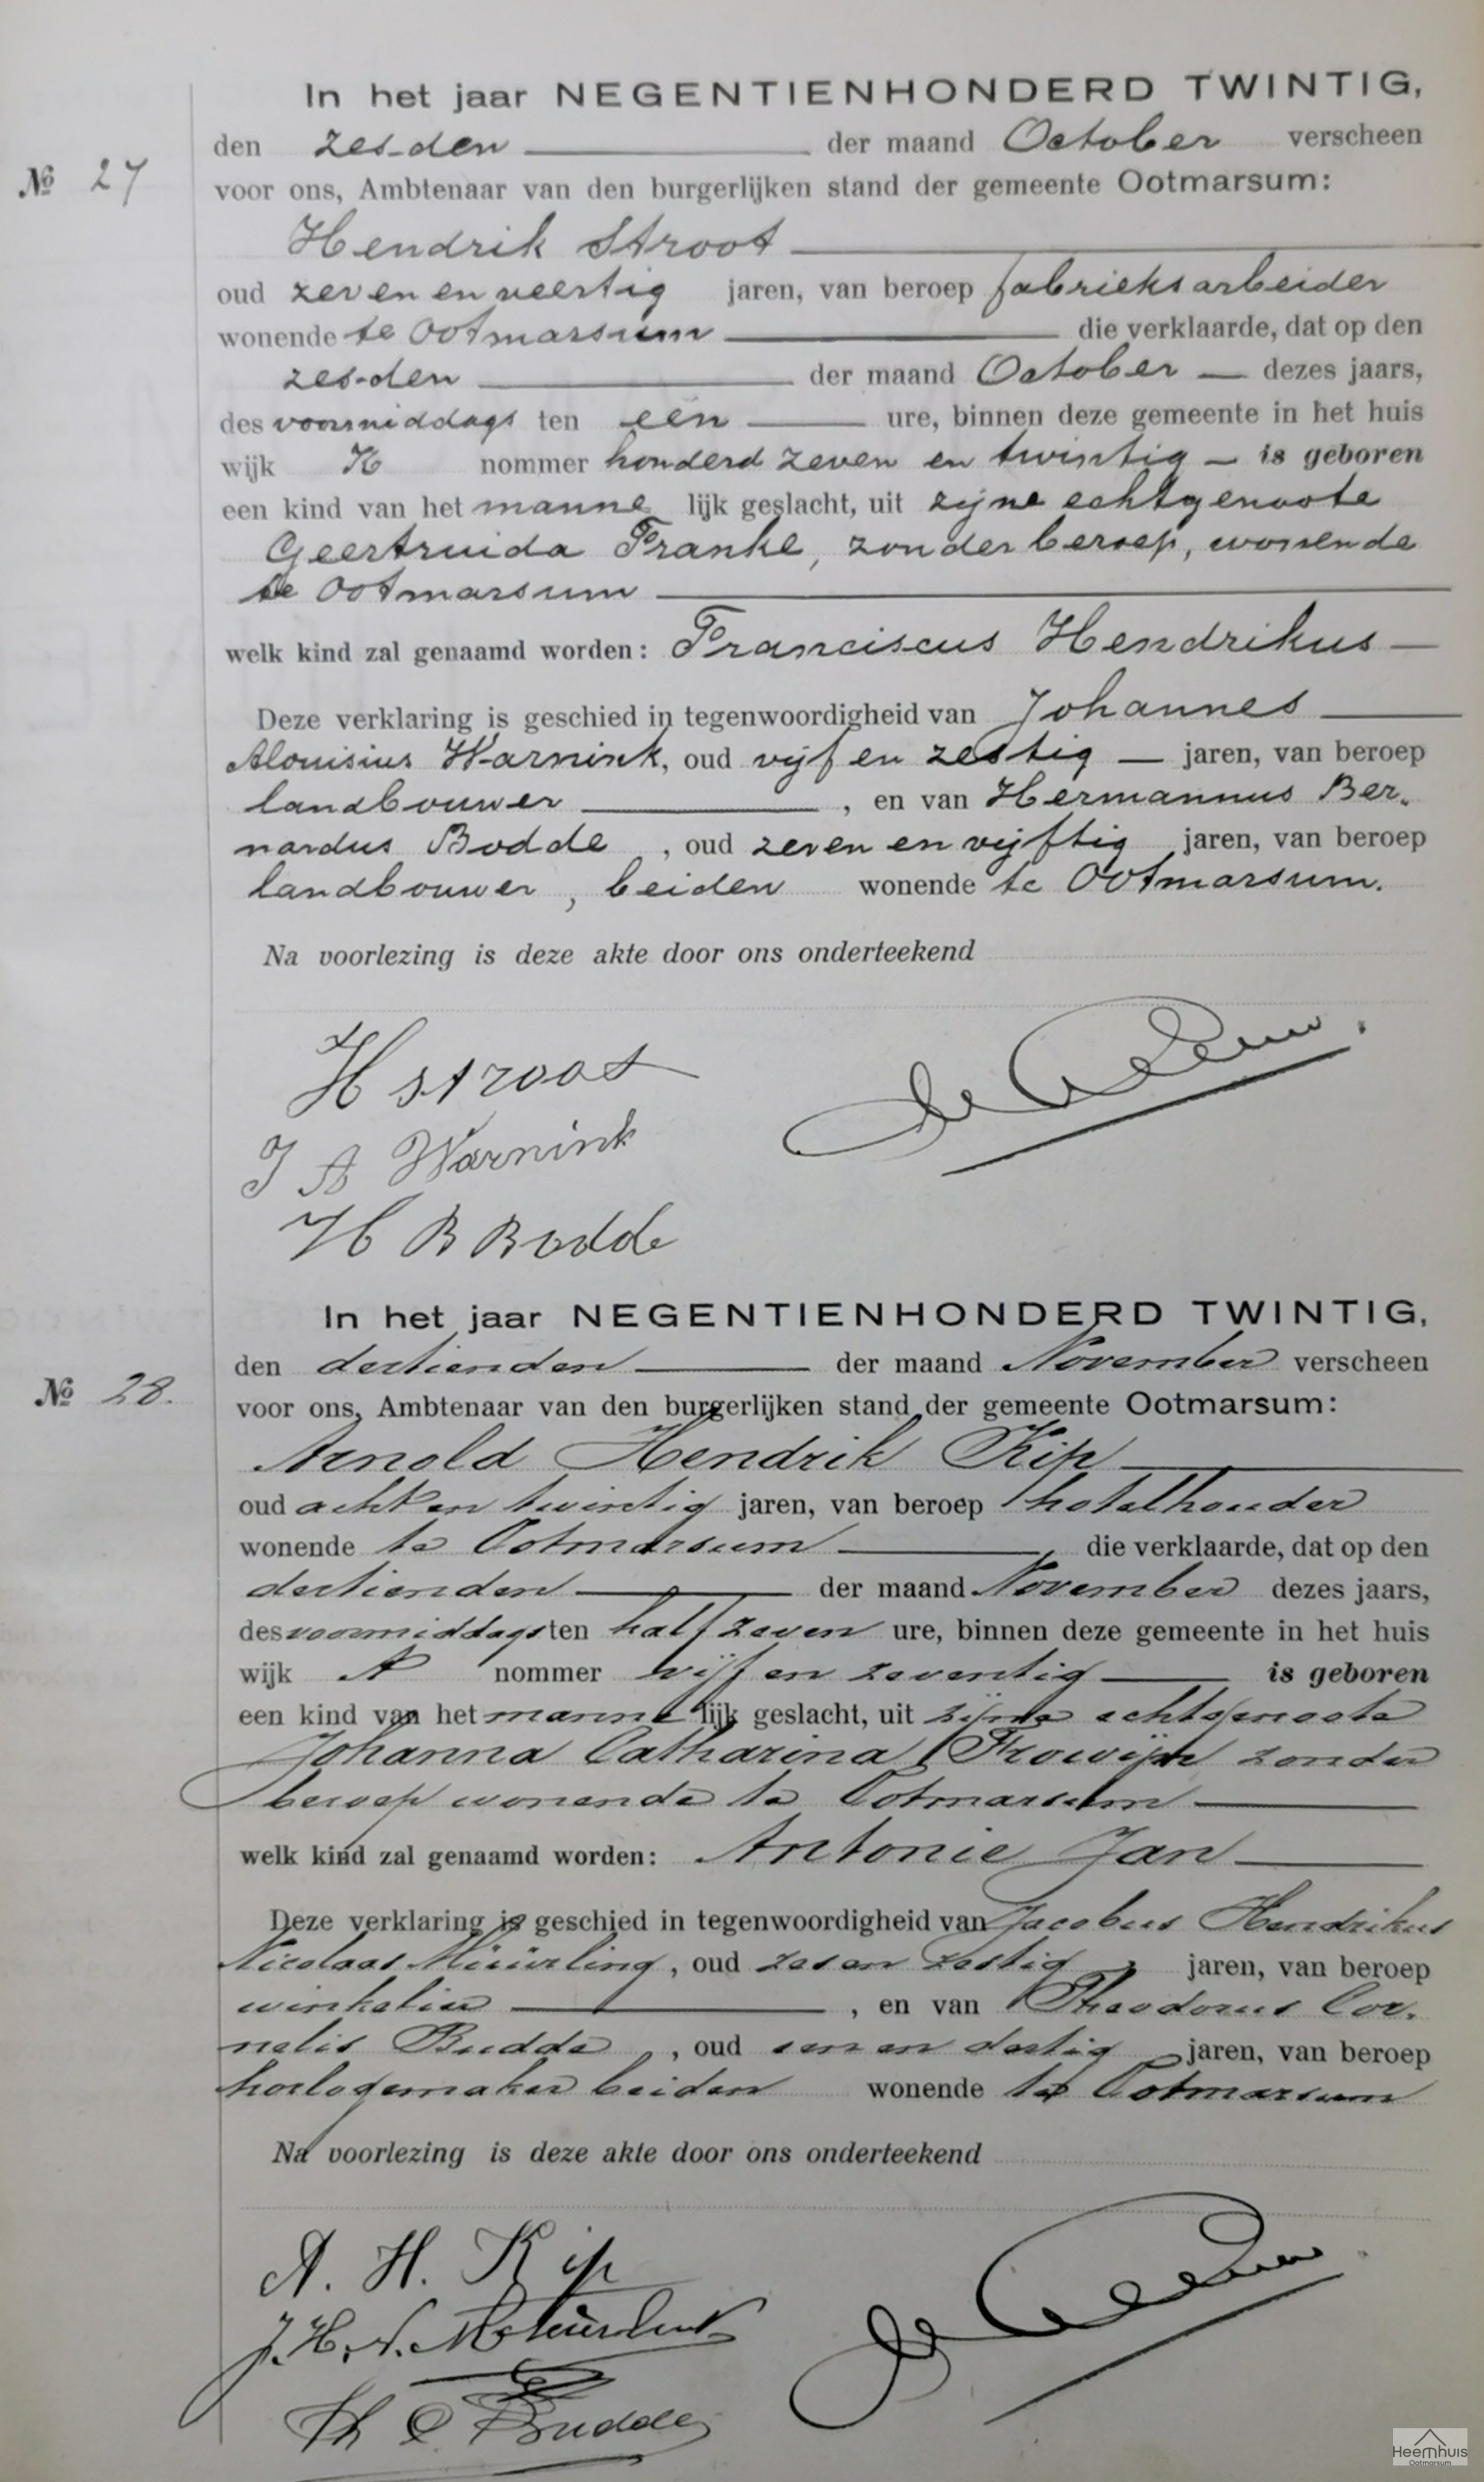 In het jaar NEGENTIENHONDERD TWINTIG,
den zesden der maand October verscheen
№ 27
voor ons, Ambtenaar van den burgerlijken stand der gemeente Ootmarsum:
Hendrik Stroot
oud zeven en veertig jaren, van beroep fabrieksarbeider
wonende te Ootmarsum die verklaarde, dat op den
zesden der maand October dezes jaars,
des voormiddags ten een ure, binnen deze gemeente in het huis
wijk K nommer honderd zeven en twintig is geboren
een kind van het manne lijk geslacht, uit zijne echtgenoote
Geertruida Franke, zonder beroep, wonende
te Ootmarsum
welk kind zal genaamd worden: Franciscus Hendrikus
Deze verklaring is geschied in tegenwoordigheid van Johannes
Alouisius Warnink, oud vijf en zestig jaren, van beroep
landbouwer, en van Hermannus Ber-
nardus Bodde, oud zeven en vijftig jaren, van beroep
landbouwer, beiden wonende te Ootmarsum.
Na voorlezing is deze akte door ons onderteekend
H Stroot
J A Warnink
H B Bodde
In het jaar NEGENTIENHONDERD TWINTIG,
den dertienden der maand November verscheen
№ 28.
voor ons, Ambtenaar van den burgerlijken stand der gemeente Ootmarsum:
Arnold Hendrik Kip
oud acht en twintig jaren, van beroep hotelhouder
wonende te Ootmarsum die verklaarde, dat op den
dertienden der maand November dezes jaars,
des voormiddags ten half zeven ure, binnen deze gemeente in het huis
wijk A nommer vijf en zeventig is geboren
een kind van het manne lijk geslacht, uit zijne echtgenoote
Johanna Catharina Frowijn zonder
beroep wonende te Ootmarsum
welk kind zal genaamd worden: Antonie Jan
Deze verklaring is geschied in tegenwoordigheid van Jacobus Hendrikus
Nicolaas, oud zes en zestig jaren, van beroep
winkelier, en van Theodorus Cor-
nelis Budde, oud een en dertig jaren, van beroep
horlogemaker beiden wonende te Ootmarsum
Na voorlezing is deze akte door ons onderteekend
A. H. Kip
J. H. N.
Th C Budde
Heemhuis
Ootmarsum